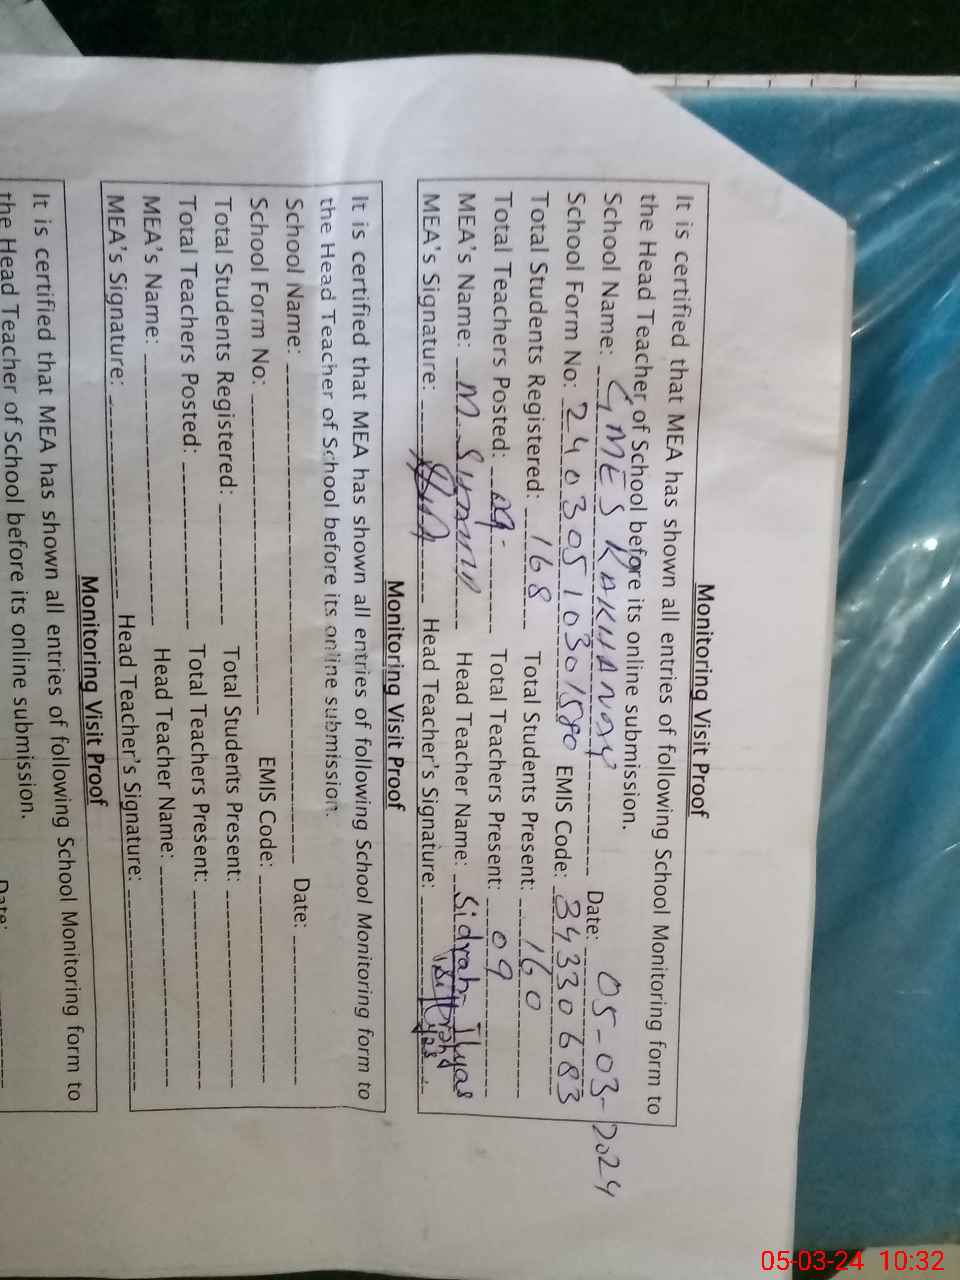 Monitoring Visit Proof
It is certified that MEA has shown all entries of following School Monitoring form to
the Head Teacher of School before its online submission.
School Name: GMES Date: 05-03-2024
School Form No: 24030510301580 EMIS Code: 34330683
Total Students Registered: 168 Total Students Present: 160
Total Teachers Posted: 09- Total Teachers Present: 09
MEA's Name: M. Head Teacher Name: Sidrah Ilyas
MEA's Signature: Head Teacher's Signature:
Monitoring Visit Proof
It is certified that MEA has shown all entries of following School Monitoring form to
the Head Teacher of School before its online submission.
School Name: Date:
School Form No: EMIS Code:
Total Students Registered: Total Students Present:
Total Teachers Posted: Total Teachers Present:
MEA's Name: Head Teacher Name:
MEA's Signature: Head Teacher's Signature:
Monitoring Visit Proof
It is certified that MEA has shown all entries of following School Monitoring form to
the Head Teacher of School before its online submission.
Date:
05-03-24 10:32